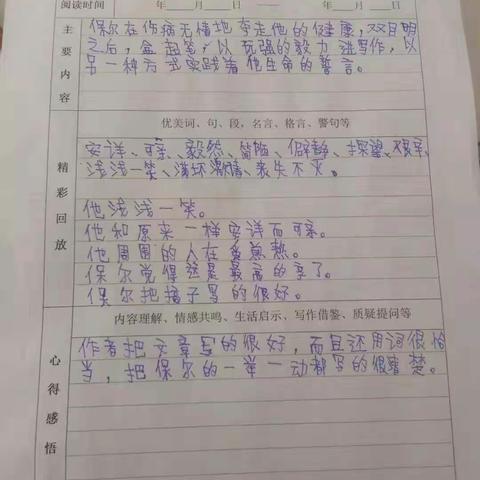 阅读时间 年 月 日 年 月 日
主要内容
保尔在伤病无情地夺走他的健康,双目明
之后,拿起笔,以玩强的毅力进写作,以
另一种方式实践着他生命的誓言。
优美词、句、段,名言、格言、警句等
精彩回放
安详、可亲、毅然、简陋、僻静、探望、艰辛、
浅浅一笑、满怀激情、丧失不灭。
他浅浅一笑。
他和原来一样安详而可亲。
他周围的人在煎熬。
保尔觉得这是最高的享了。
保尔把搞子写的很好。
内容理解、情感共鸣、生活启示、写作借鉴、质疑提问等
心得感悟
作者把文章写的很好,而且还用词很恰
当,把保尔的一举一动都写的很清楚。